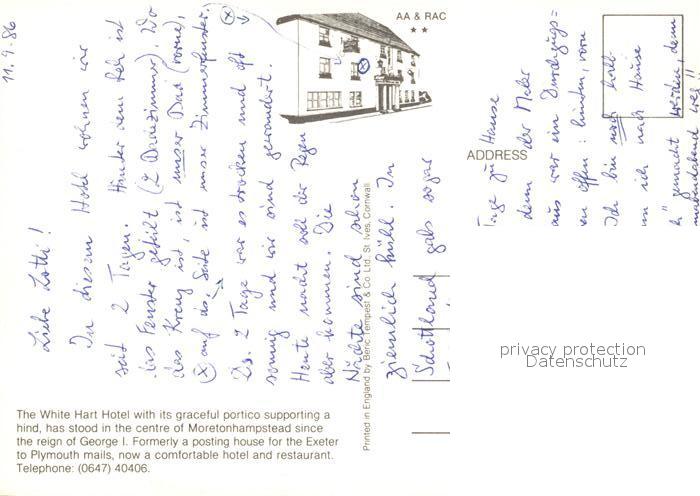 11.9.86
AA & RAC
★ ★
Liebe Lotti!
In diesem Hotel wohnen wir
seit 2 Tagen. Hinter dem Reh ist
das Fenster (2 Do
das Kreuz ist, ist unser Bad (vorne,
auf der Seite ist unser Zimmerfenster.
2 Tage war es trocken und oft
sonnig und wir sind gewandert.
Heute nacht soll der Regen
aber kommen. Die
Nächte sind schon
ziemlich kühl. In
Schottland gabs sogar
Tage zu Hause
denn der
aus war ein Durchzugs=
offen: hinten, vorn
Ich bin noch halb
ich nach Hause
gemacht werden, denn
ADDRESS
Printed in England by Beric Tempest & Co. Ltd. St. Ives, Cornwall
privacy protection
Datenschutz
The White Hart Hotel with its graceful portico supporting a
hind, has stood in the centre of Moretonhampstead since
the reign of George I. Formerly a posting house for the Exeter
to Plymouth mails, now a comfortable hotel and restaurant.
Telephone: (0647) 40406.